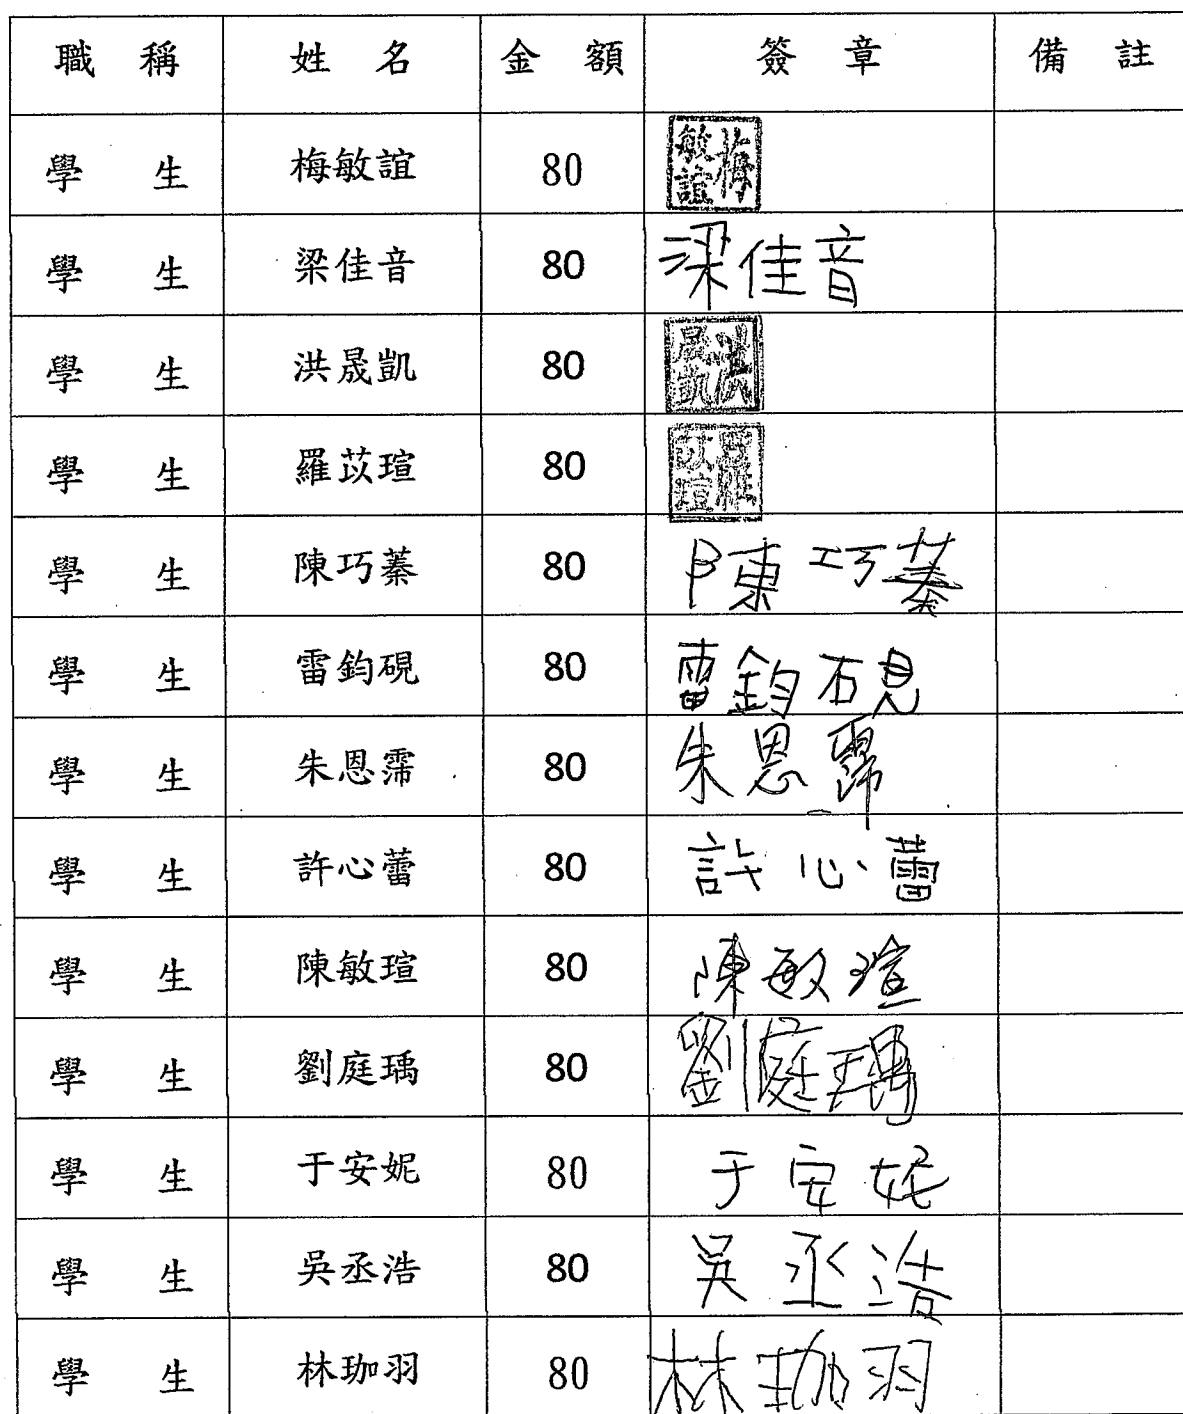 職稱 姓名 金額 簽章 備註
學生 梅敏誼 80 梅敏誼
學生 梁佳音 80 梁佳音
學生 洪晟凱 80 洪晟凱
學生 羅苡瑄 80 羅苡瑄
學生 陳巧蓁 80 陳巧蓁
學生 雷鈞硯 80 雷鈞硯
學生 朱恩霈 80 朱恩霈
學生 許心蕾 80 許心蕾
學生 陳敏瑄 80 陳敏瑄
學生 劉庭瑀 80 劉庭瑀
學生 于安妮 80 于安妮
學生 吳丞浩 80 吳丞浩
學生 林珈羽 80 林珈羽